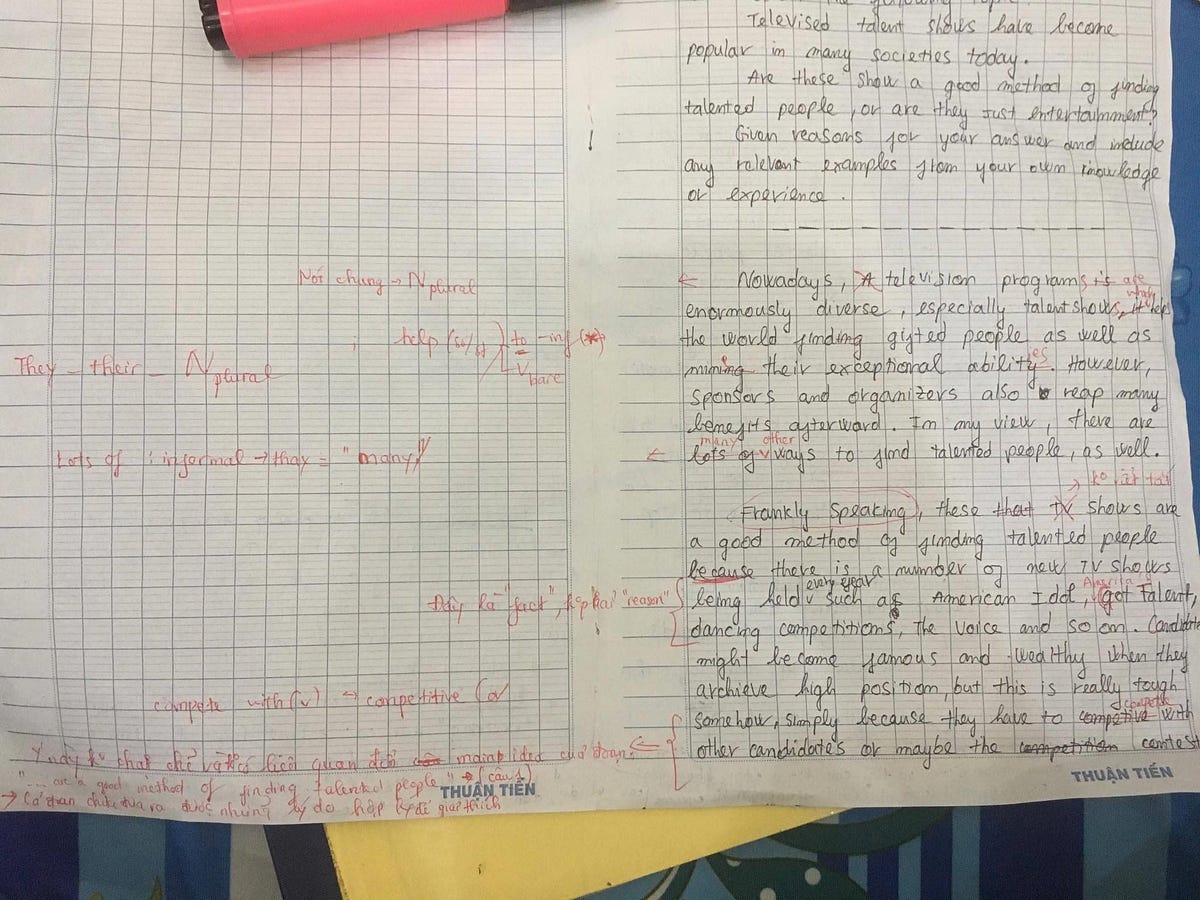 Televised talent shows have become
popular in many societies today.
Are these show a good method of finding
talented people, or are they Just entertainment?
Given reasons for your answer and include
any relevant examples from your own knowledge
or experience.
Nowadays, television programs is are
enormously diverse, especially talent shows, which it help
the world finding gifted people as well as
mining their exceptional abilityies. However,
sponsors and organizers also reap many
benefits afterward. In my view, there are
many other
lots of ways to find talented people, as well.
Frankly Speaking, these that TV shows are
a good method of finding talented people
because there is a number of new TV shows
every year
being held such as American Idol, got Talent,
dancing competitions, the voice and so on. Candidate
might become famous and wealthy when they
archieve high position, but this is really tough
compete
somehow, simply because they have to competive with
other candidates or maybe the competition contest
THUẬN TIẾN
Nói chung → N plural
help (so/st) to - inf
V bare
They - their - N plural
Lots of : informal → thay = "many"
Đây là "fact", "reason"
compete with (v) → competitive
main idea của đoạn
"... are a good method of finding talented people" (câu 1)
→ Cả đoạn chưa đưa ra được những lý do hợp lý để giải thích
THUẬN TIẾN